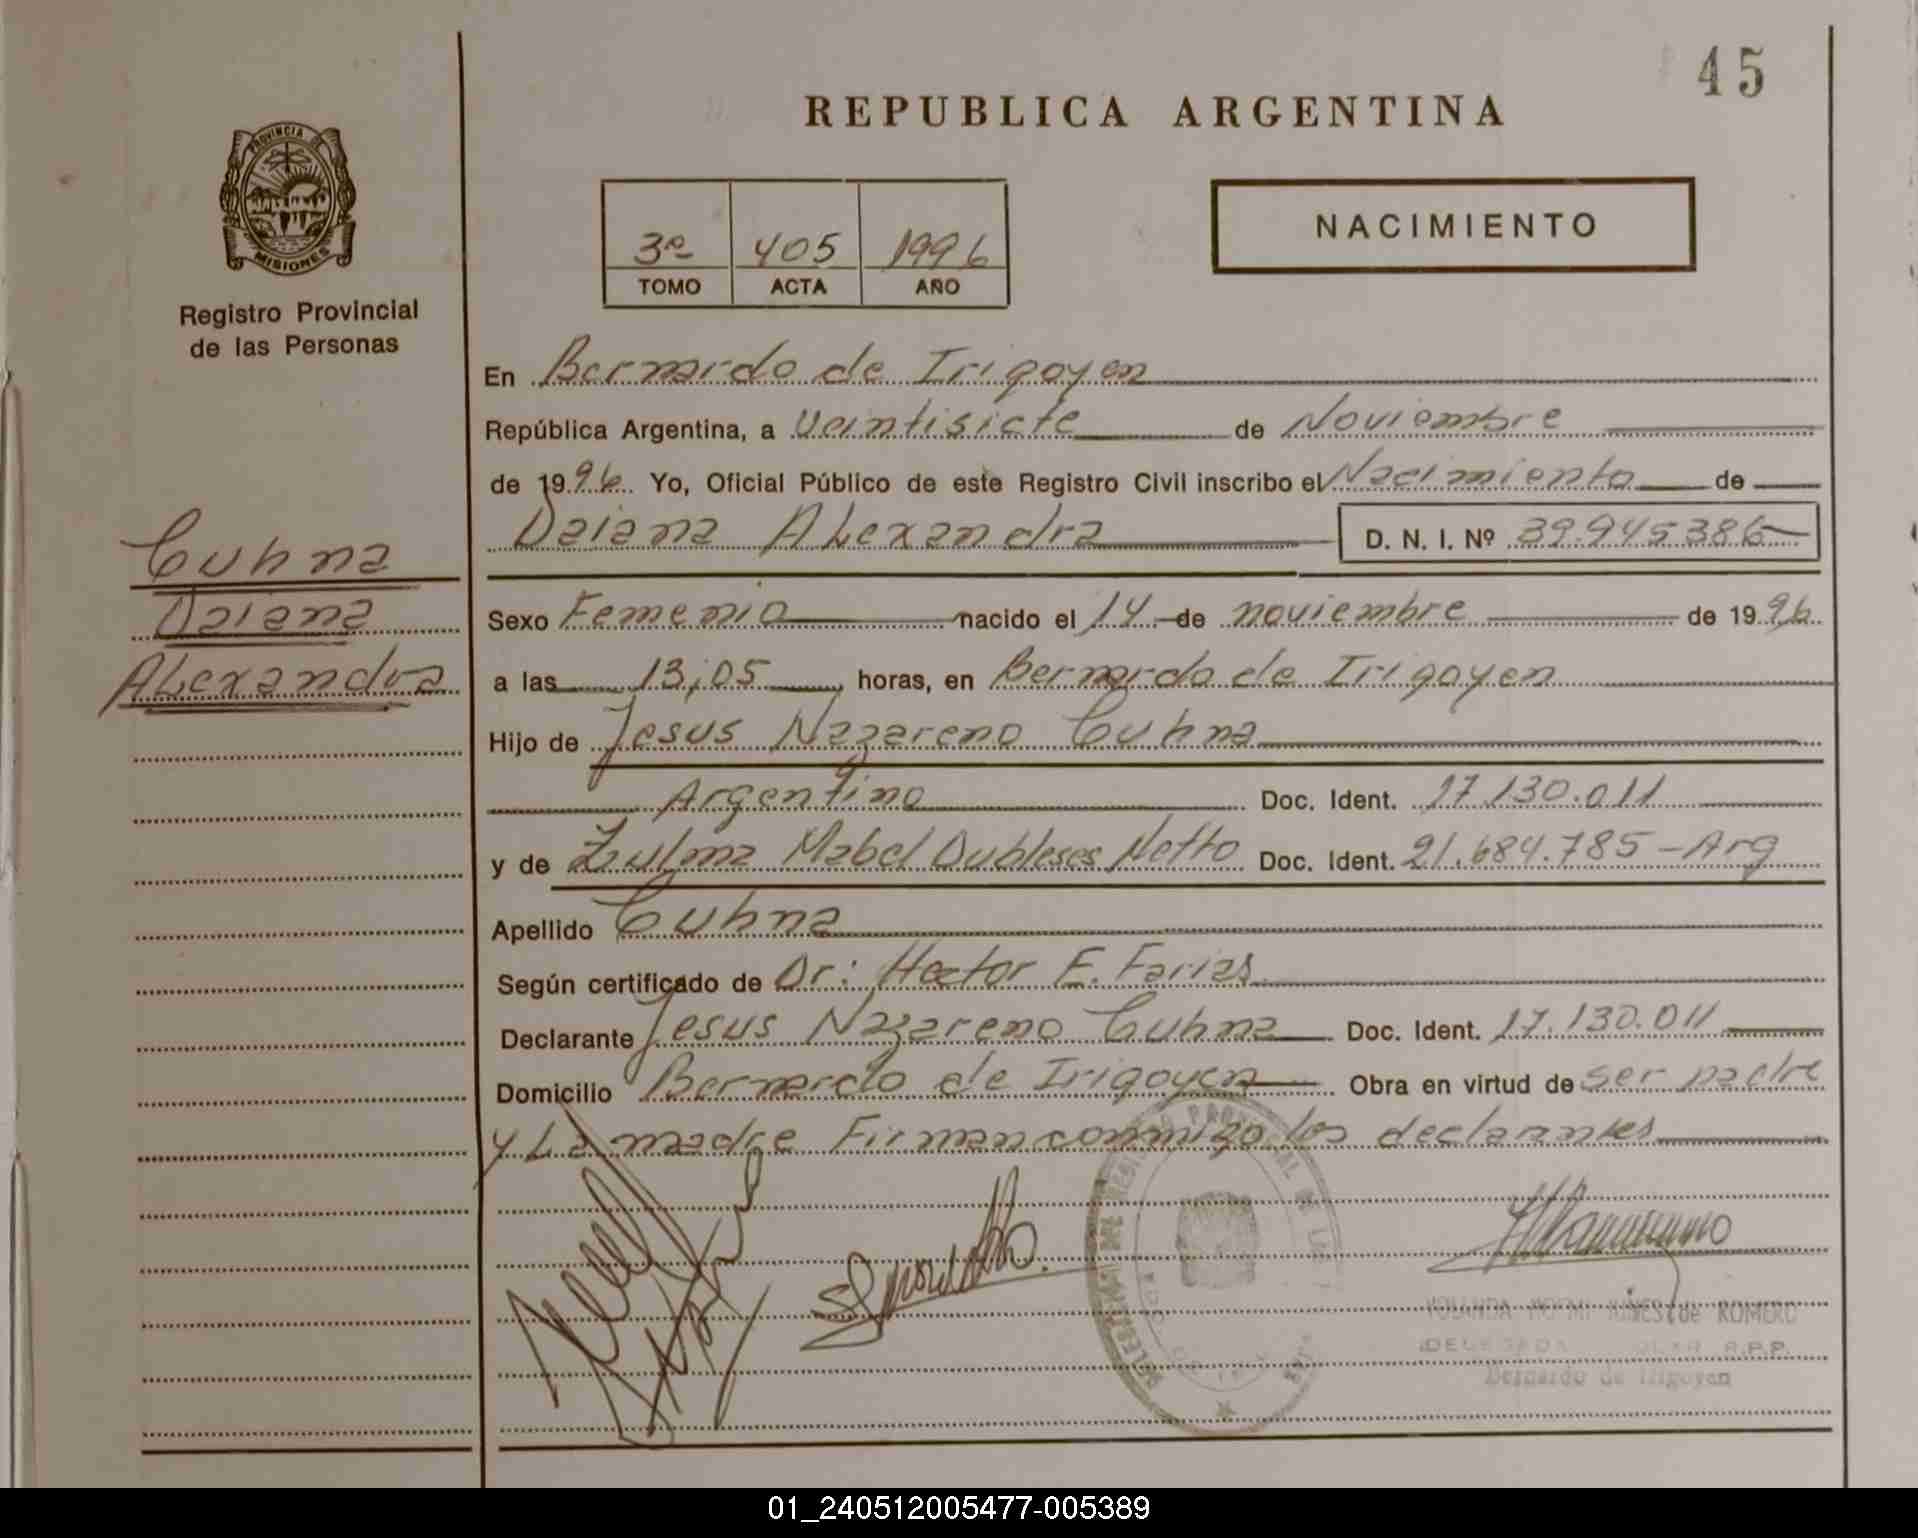 45
REPUBLICA ARGENTINA
PROVINCIA DE
MISIONES
Registro Provincial
de las Personas
3º 405 1996
TOMO ACTA AÑO
NACIMIENTO
En Bernardo de Irigoyen
República Argentina, a Veintisiete de Noviembre
de 1996. Yo, Oficial Público de este Registro Civil inscribo el Nacimiento de
Daiana Alexandra D. N. I. Nº 39.945386
Cuhna
Daiana
Alexandra
Sexo Femenio nacido el 14 de noviembre de 1996
a las 13,05 horas, en Bernardo de Irigoyen
Hijo de Jesus Nazareno Cuhna
Argentino Doc. Ident. 17.130.011
y de Zulma Mabel Netto Doc. Ident. 21.684.785-Arg
Apellido Cuhna
Según certificado de Dr: Hector E. Farias
Declarante Jesus Nazareno Cuhna Doc. Ident. 17.130.011
Domicilio Bernardo de Irigoyen Obra en virtud de ser padre
y La madre Firman conmigo los declarantes
YOLANDA de ROMERO
DELEGADA R.P.P.
Bernardo de Irigoyen
01_240512005477-005389